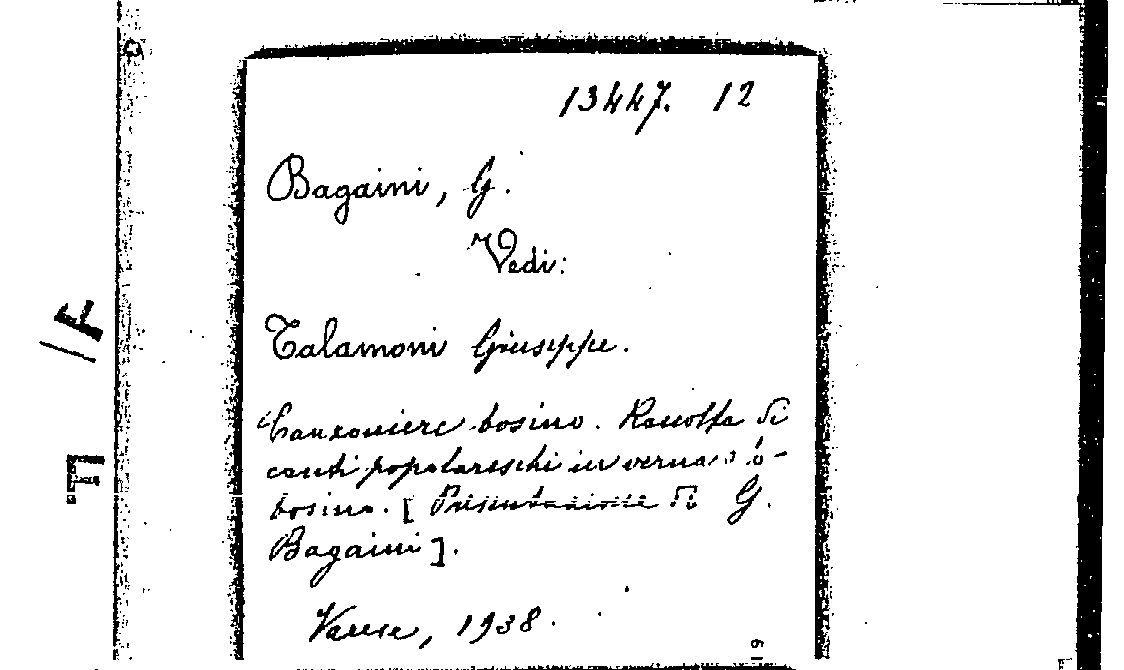 13447. 12
Bagaini, G.
Vedi:
Talamoni Giuseppe.
Canzoniere bosino. Raccolta di
canti popolareschi in vernacolo
bosino. [Presentazione di G.
Bagaini].
Varese, 1938.